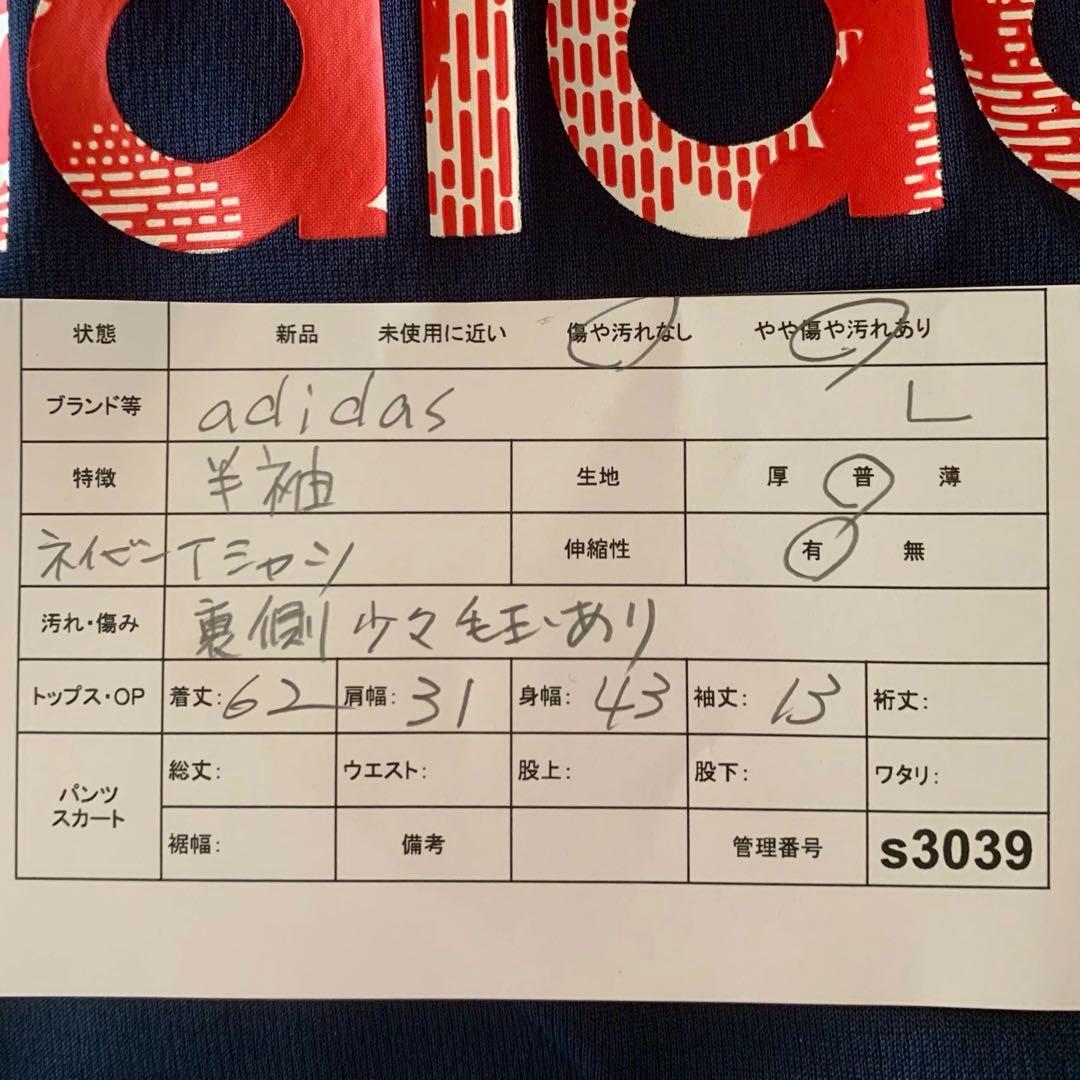 adidas
状態 新品 未使用に近い 傷や汚れなし やや傷や汚れあり
ブランド等 adidas L
特徴 半袖 生地 厚 普 薄
ネイビー Tシャツ 伸縮性 有 無
汚れ・傷み 裏側 少々毛玉あり
トップス・OP 着丈:62 肩幅:31 身幅:43 袖丈:13 裄丈:
パンツ
スカート
総丈: ウエスト: 股上: 股下: ワタリ:
裾幅: 備考 管理番号 s3039